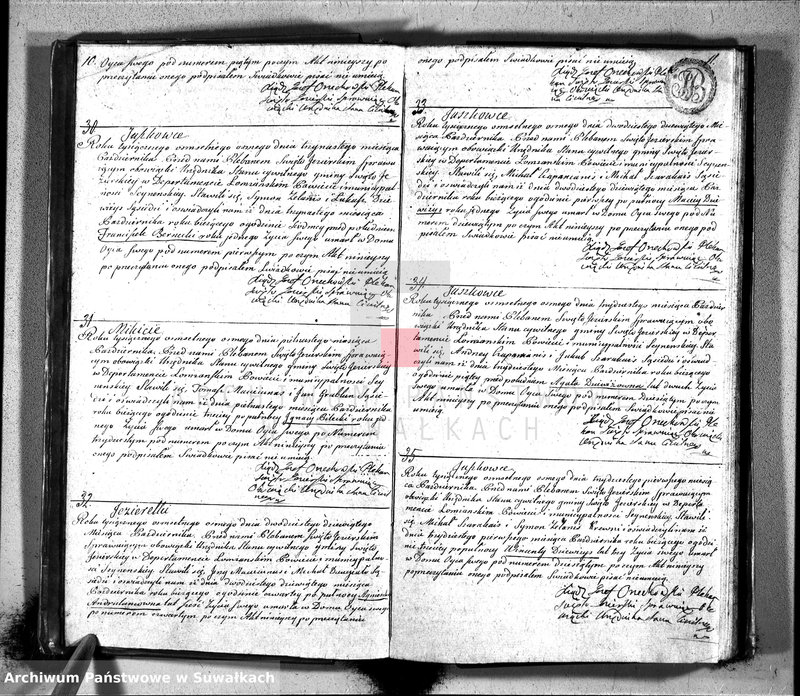 10. Oyca swego pod numerem piątym poczym Akt ninieyszy po
przeczytaniu onego podpisałem Swiadkowie pisać nie umieią
Xiądz Jozef Onechowski Pleban
Święto Jezierski Sprawuiący Ob
owiązki Urzędnika Stanu Cywilnego
30. Jaskowce
Roku tysięcznego osmsetnego osmego dnia trzynastego miesiąca
Października. Przed nami Plebanem Święto Jezierskim Sprawu
iącym obowiązki Urzędnika Stanu cywilnego gminy Święto Je
zierskiey w Departamencie Łomżańskim Powiecie i municypal
ności Seyneńskiey. Stawili się, Symon Zelazis i Łukasz Dzie
wiżys Sąsiedzi i oswiadczyli nam iż dnia trzynastego miesiąca
Października roku bieżącego ogodzinie siodmey przed południem
Franciszek Bernecki roku jednego Życia swego umarł w Domu
Oyca swego pod numerem pierwszym po czym Akt ninieyszy
po przeczytaniu onego podpisałem Swiadkowie pisać nie umieią
Xiądz Jozef Onechowski Pleban
Święto Jezierski Sprawuiący Ob
owiązki Urzędnika Stanu Cywilnego
31. Mikicie
Roku tysięcznego osmsetnego osmego dnia piętnastego miesiąca
Października. Przed nami Plebanem Święto Jezierskim Sprawuią
cym obowiązki Urzędnika Stanu cywilnego gminy Święto Jezierskiey
w Departamencie Łomżańskim Powiecie i municypalności Sey
neńskiey. Stawili się, Tomasz Maciunas i Jan Grublun Sąsie
dzi i oswiadczyli nam iż dnia piętnastego miesiąca Października
roku bieżącego ogodzinie trzeciey popołudniu Ignacy Bilecki roku je
dnego Życia swego umarł w Domu Oyca swego po Numerem
trzydziestym pod numerem poczym Akt ninieyszy po przeczytaniu
onego podpisałem Swiadkowie pisać nie umieią
Xiądz Jozef Onechowski Pleban
Święto Jezierski Sprawuiący
Obowiązki Urzędnika Stanu Cywil
nego
32. Jeziorelki
Roku tysięcznego osmsetnego osmego dnia dwudziestego dziewiątego
Miesiąca Października. Przed nami Plebanem Święto Jezierskim
Sprawuiącym obowiązki Urzędnika Stanu cywilnego gminy Święto
Jezierskiey w Departamencie Łomżańskim Powiecie i municypalno
ści Seyneńskiey Stawili się, Jerzy Maciunas i Michał Są
siedzi i oswiadczyli nam iż dnia dwudziestego dziewiątego miesiąca
Października roku bieżącego ogodzinie czwartey po południu Agnieszka
Andrulunowna lat sześć Życia swego umarła w Domu Oyca swego
po numerem czwartym po czym Akt ninieyszy po przeczytaniu
onego podpisałem Swiadkowie pisać nie umieią
Xiądz Jozef Onechowski Pleban
Święto Jezierski Sprawuią
cy Obowiązki Urzędnika Sta
nu Cywilnego
33. Jaskowce
Roku tysięcznego osmsetnego osmego dnia dwudziestego dziewiątego Mie
siąca Października. Przed nami Plebanem Święto Jezierskim Spra
wuiącym obowiązki Urzędnika Stanu cywilnego gminy Święto Jezier
skiey w Departamencie Łomżańskim Powiecie i municypalności Seyneń
skiey. Stawili się, Michał Łapanias i Michał Szarkais Sąsie
dzi i oswiadczyli nam iż dnia dwudziestego dziewiątego miesiąca Paź
dziernika roku bieżącego ogodzinie pierwszey po południu Maciey Dzie
wiżys roku jednego Życia swego umarł w Domu Oyca swego pod Nu
merem dziewiątym po czym Akt ninieyszy po przeczytaniu onego pod
pisałem Swiadkowie pisać nie umieią
Xiądz Jozef Onechowski Pleban
Święto Jezierski Sprawuiący Obo
wiązki Urzędnika Stanu Cywilnego
34. Jaskowce
Roku tysięcznego osmsetnego osmego dnia trzydziestego miesiąca Paździer
nika. Przed nami Plebanem Święto Jezierskim Sprawuiącym obo
wiązki Urzędnika Stanu cywilnego gminy Święto Jezierskiey w Depar
tamencie Łomżańskim Powiecie i municypalności Seyneńskiey. Sta
wili się, Andrzey Łapanias i Jakub Szarkais Sąsiedzi i oswiad
czyli nam iż dnia trzydziestego Miesiąca Października roku bieżącego
ogodzinie piątey przed południem Agata Dziewiżowna lat dwoch Życia
swego umarła w Domu Oyca Swego pod numerem dziesiątym po czym
Akt ninieyszy po przeczytaniu onego podpisałem Swiadkowie pisać nie
umieią
Xiądz Jozef Onechowski Ple
ban Święto Jezierski Sprawuiący Obowiązki
Urzędnika Stanu Cywilnego
35. Jaskowce
Roku tysięcznego osmsetnego osmego dnia trzydziestego pierwszego miesią
ca Października. Przed nami Plebanem Święto Jezierskim Sprawuiącym
obowiązki Urzędnika Stanu cywilnego gminy Święto Jezierskiey w Departa
mencie Łomżańskim Powiecie i municypalności Seyneńskiey. Stawili
się Michał Szarkais i Symon Zelazis Krewni i oswiadczyli nam iż
dnia trzydziestego pierwszego miesiąca Października roku bieżącego ogodzi
nie trzeciey popołudniu Wincenty Dziewiżys lat trzy Życia swego umarł
w Domu Oyca swego pod numerem dziesiątym po czym Akt ninieyszy
po przeczytaniu onego podpisałem Swiadkowie pisać nie umieią
Xiądz Jozef Onechowski Pleban
Święto Jezierski Sprawuiący Ob
owiązki Urzędnika Stanu Cywilnego
SUWAŁKACH
Archiwum Państwowe w Suwałkach